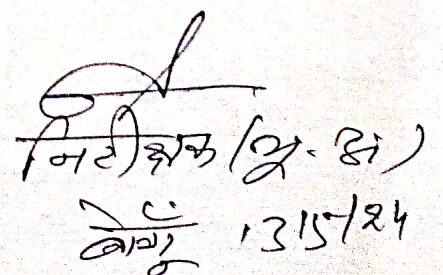 निरीक्षक (भू. अ)
बेगूं 13/5/24